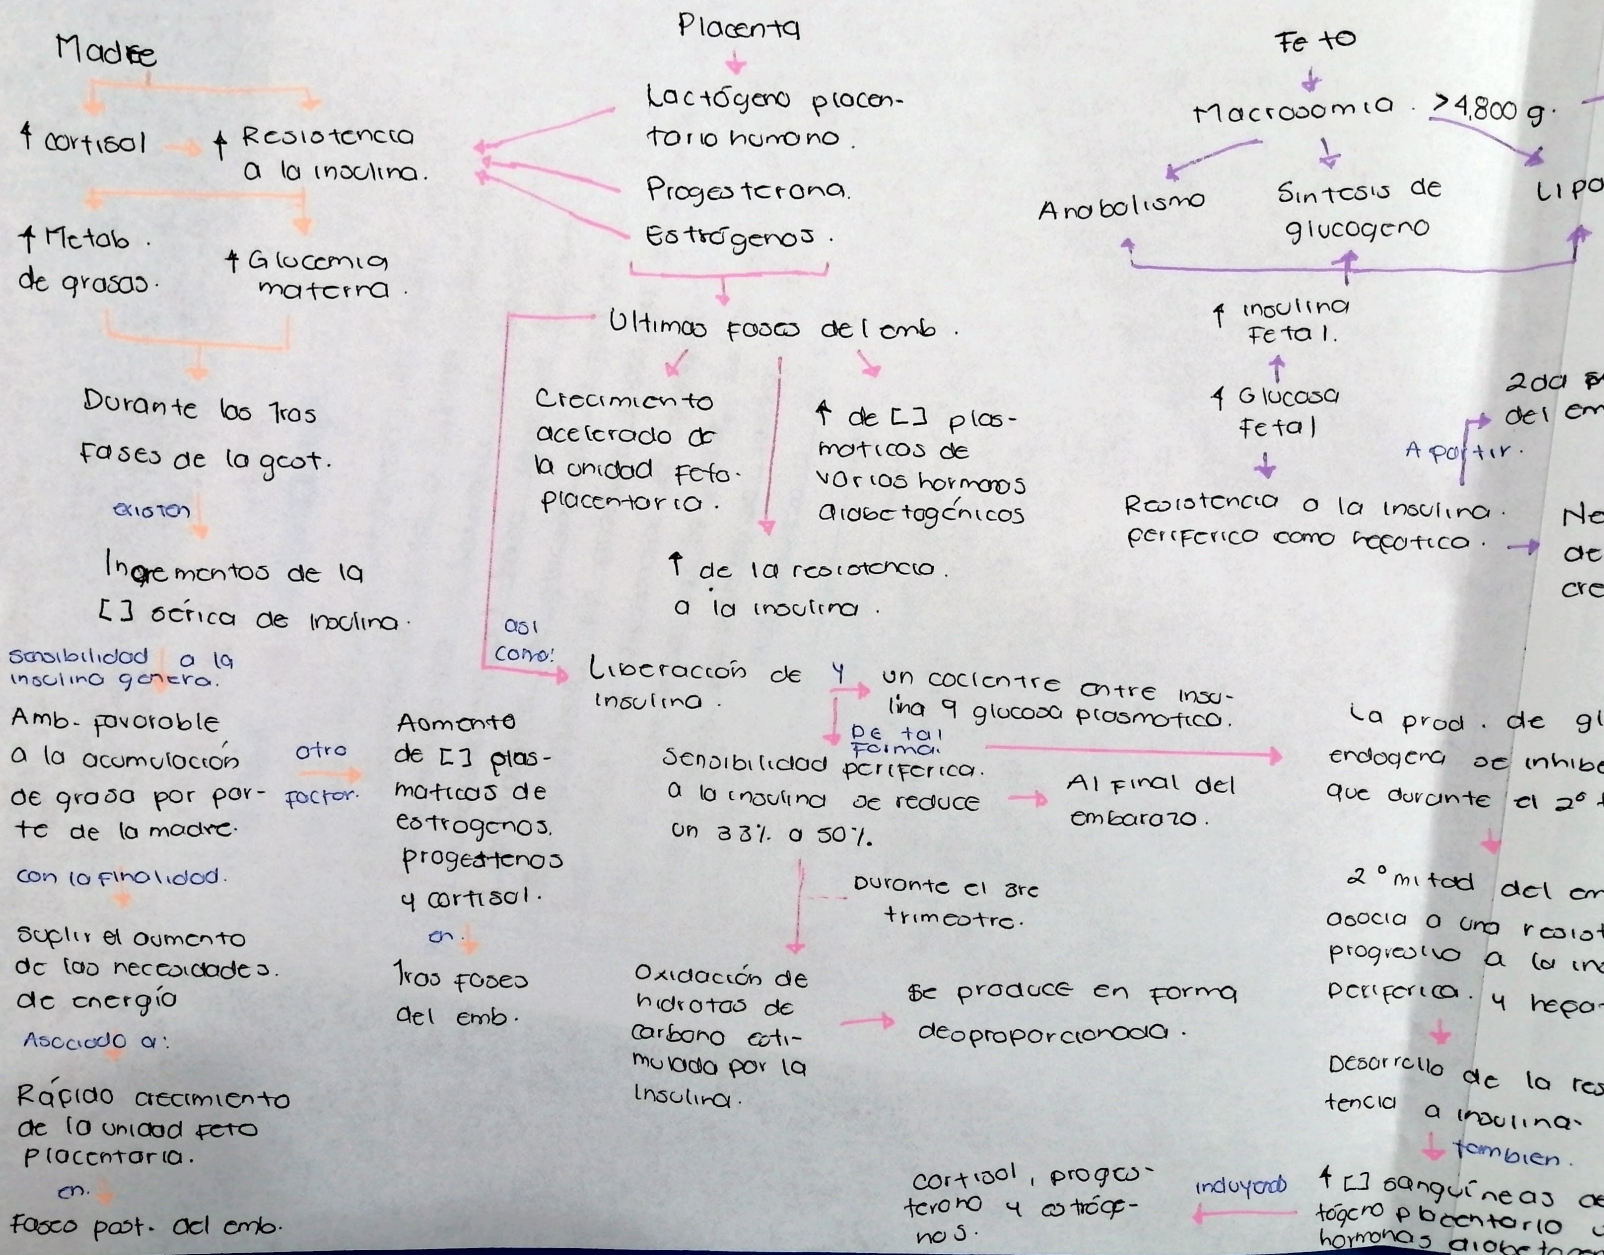 Madre
↑ cortisol
↑ Resistencia
a la insulina.
↑ Metab.
de grasas.
↑ Glucemia
materna.
Durante las 1ras
Fases de la gest.
existen
Incrementos de la
[] sérica de insulina.
sensibilidad a la
insulina genera.
Amb. favorable
a la acumulación
de grasa por par-
te de la madre.
otro
factor.
Aomento
de [] plas-
maticas de
estrogenos,
progestenos
y cortisol.
en.
1ras fases
del emb.
con la finalidad.
suplir el aumento
de las necesidades.
de energío
Asociado a:
Rápido crecimiento
de la unidad feto
placentaria.
en.
Fases post. del emb.
Placenta
Lactógeno placen-
tario humano.
Progesterona.
Estrógenos.
Ultimas fases del emb.
Crecimiento
acelerado de
la unidad feto.
placentaria.
↑ de [] plas-
maticas de
varias hormonas
diabetogénicas
↑ de la resistencia.
a la insulina.
asi
como:
Liberacción de
insulina.
y
un cocientre entre insu-
lina y glucosa plasmatica.
De tal
forma.
Sensibilidad periferica.
a la insulina se reduce
un 33% a 50%.
Al final del
embarazo.
Durante el 3re
trimestre.
Oxidación de
hidratas de
carbono esti-
mulada por la
Insulina.
se produce en forma
desproporcionada.
Feto
Macrosomia. >4,800 g.
Anabolismo
Sintesis de
glucogeno
Lipo
↑ insulina
Fetal.
↑ Glucosa
Fetal
Resistencia a la insulina.
periferica como hepatica.
A partir.
2da
del em
Ne
de
cre
La prod. de gl
endogena se inhibe
que durante el 2°
2° mitad del em
asocia a una resist
progresiva a la in
periferica. y hepa
Desarrollo de la res
tencia a insulina.
tambien.
↑ [] sanguíneas de
tógeno placentario
hormonas diabetog
incluyendo
cortisol, proges-
terona y estróge-
nos.